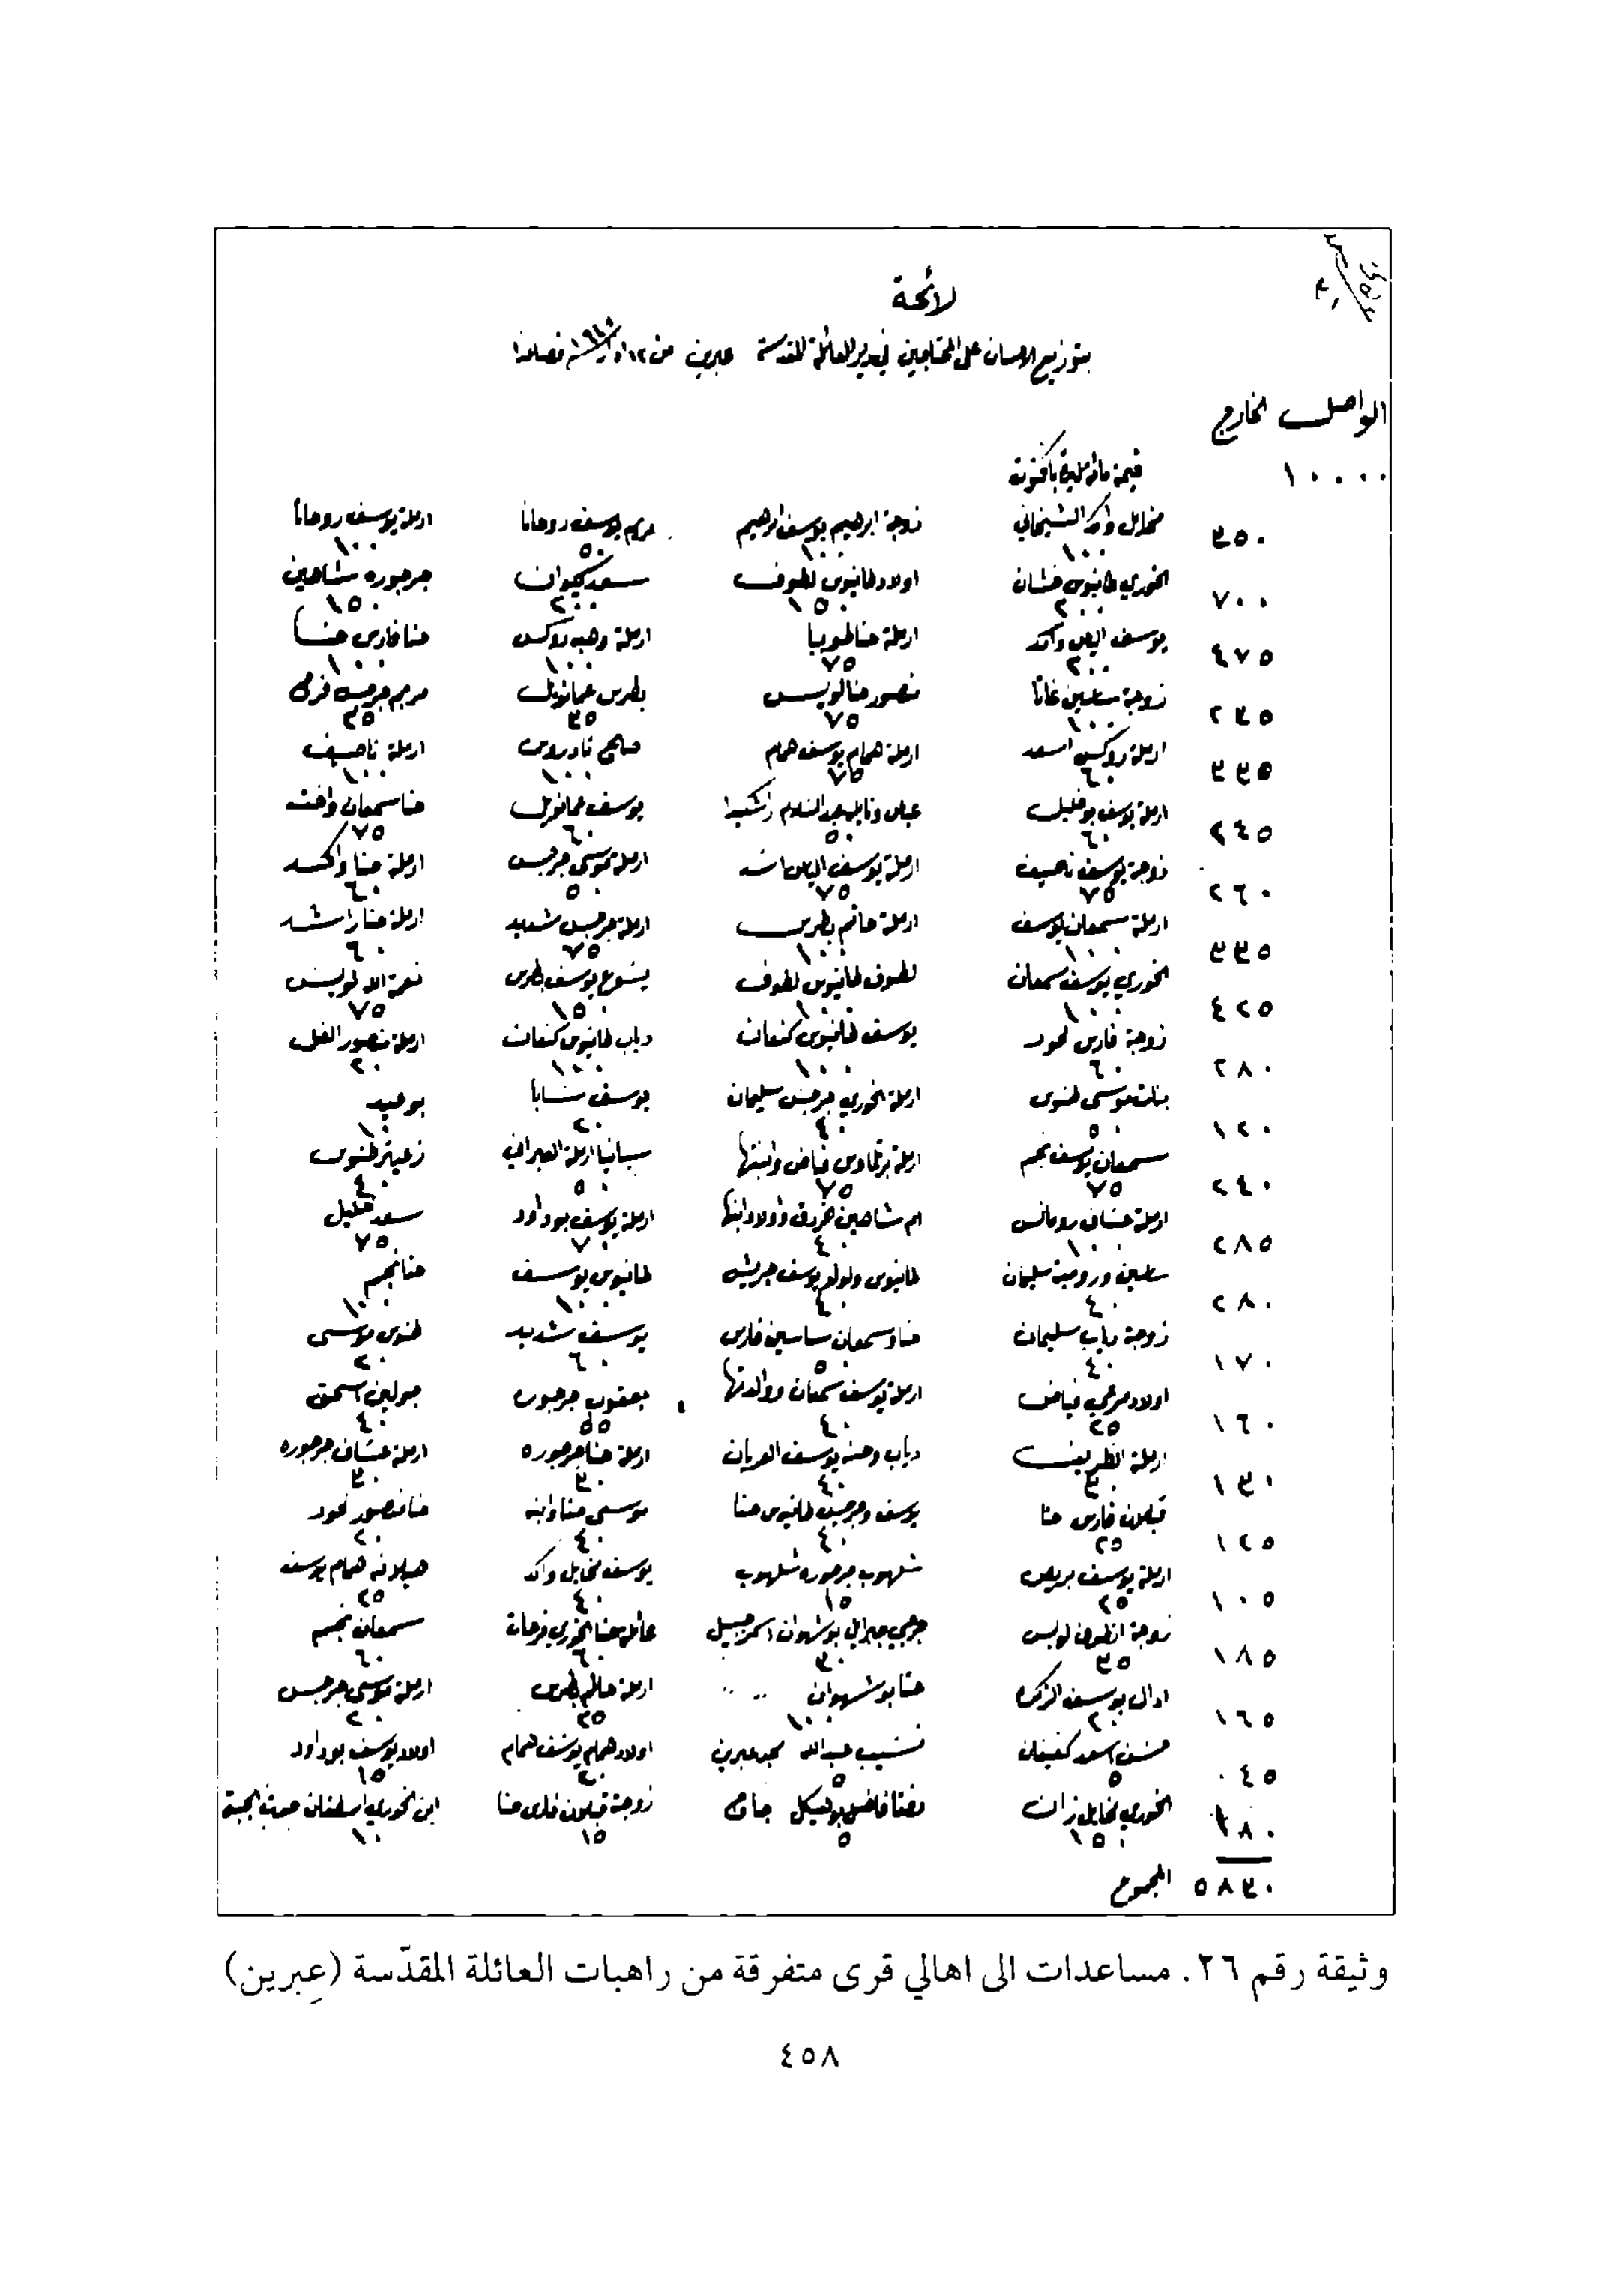 لائحة
بتوزيع الاحسان على المحتاجين في دير العائلة المقدسة عبرين من ١٢ فصاعدا
الواصل الخارج
١٠٠٠٠ قيمة
٣٥٠ مخايل الشيخاني ١٠٠ زوجة ابرهيم يوسف ابرهيم ١٠٠ مريم يوسف روحانا ٥٠ ارملة يوسف روحانا ١٠٠
٧٠٠ الخوري طانيوس خشان ٢٠٠ اولاد طانيوس لطوف ١٥٠ سعد كيوان ٢٠٠ جرجوره شاهين ١٥٠
٤٧٥ يوسف الياس واكد ٢٠٠ ارملة حنا طوبيا ٧٥ ارملة وهبه روكس ١٠٠ حنا فارس حنا ١٠٠
٢٣٥ زوجة ساسين غانا ١٠٠ منصور حنا لويس ٧٥ بطرس عمانوئيل ٣٥ مريم جرجس ٢٥
٣٣٥ ارملة روكس اسعد ٦٠ ارملة همام يوسف همام ٧٥ صالح تادروس ١٠٠ ارملة ناصيف ١٠٠
٢٤٥ ارملة يوسف بو خليل ٦٠ عبد السلام ٥٠ يوسف عمانوئيل ٦٠ حنا سمعان واخته ٧٥
٢٦٠ زوجة يوسف ناصيف ٧٥ ارملة يوسف الياس ٧٥ ارملة موسى جرجس ٥٠ ارملة حنا واكد ٦٠
٣٣٥ ارملة سمعان يوسف ١٠٠ ارملة حاتم بطرس ١٠٠ ارملة جرجس شديد ٧٥ ارملة حنا راشد ٦٠
٤٢٥ الخوري يوسف سمعان ١٠٠ لطوف طانيوس لطوف ١٠٠ يشوع يوسف بطرس ١٥٠ نعمة الله لويس ٧٥
٢٨٠ زوجة فارس لحود ٦٠ يوسف طانيوس كنعان ١٠٠ دياب طانيوس كنعان ١٠٠ ارملة منصور ٢٠
١٢٠ بنات موسى طنوس ٥٠ ارملة الخوري جرجس سليمان ٤٠ يوسف سابا ٢٠ بو عبيد ١٠
٢٤٠ سمعان يوسف نجم ٧٥ ارملة برتلماوس فياض وابنتها ٧٥ ارملة ٥٠ طنوس ٤٠
٢٨٥ ارملة خشان رومانس ١٠٠ ام شاهين واولاد ابنها ٤٠ ارملة يوسف بو داود ٧٠ سعد خليل ٧٥
٢٨٠ ساسين ورومية سليمان ٤٠ طانيوس ولولو يوسف ٤٠ طانيوس يوسف ١٠٠ حنا نجم ١٠٠
١٧٠ زوجة دياب سليمان ٤٠ حنا وسمعان ساسين فارس ٥٠ يوسف شديد ٦٠ طنوس موسى ٢٠
١٦٠ اولاد مرعي فياض ٢٥ ارملة يوسف سمعان ووالدتها ٤٠ يعقوب جرجوره ٥٥ جولين اسحق ٤٠
١٣٠ ارملة الظريف ٣٠ دياب وحنه يوسف العريان ٤٠ ارملة حنا جرجوره ٣٠ ارملة خشان جرجوره ٣٠
١٢٥ قبلان فارس حنا ٢٥ يوسف وجرجس طانيوس حنا ٤٠ موسى حنا وابنه ٤٠ حنا منصور لحود ٢٠
١٠٥ ارملة يوسف ٢٥ شلهوب جرجوره شلهوب ١٥ يوسف مخايل واكد ٤٠ هيلانه همام يوسف ٢٥
١٨٥ زوجة انطون لويس ٣٥ جرجي جبرايل بو شهوان ٣٠ عائلة حنا الخوري فرحات ٦٠ سمعان نجم ٦٠
١٦٥ يوسف ٢٠ حنا بو شهوان ١٠٠ ارملة حاتم بطرس ٢٥ ارملة موسى جرجس ٢٠
٠٤٥ اسعد ٥ نسيب عبدالله عبرين ٥ اولاد همام يوسف همام ٢٠ اولاد يوسف بو داود ١٥
١٨٠ الخوري مخايل ١٥٠ بو هيكل جاج ٥ زوجة قبلان فارس حنا ١٥ ابن الخوري اسطفان ١٠
٥٨٣٠ المجموع
وثيقة رقم ٢٦. مساعدات الى اهالي قرى متفرقة من راهبات العائلة المقدّسة (عِبرين)
٤٥٨